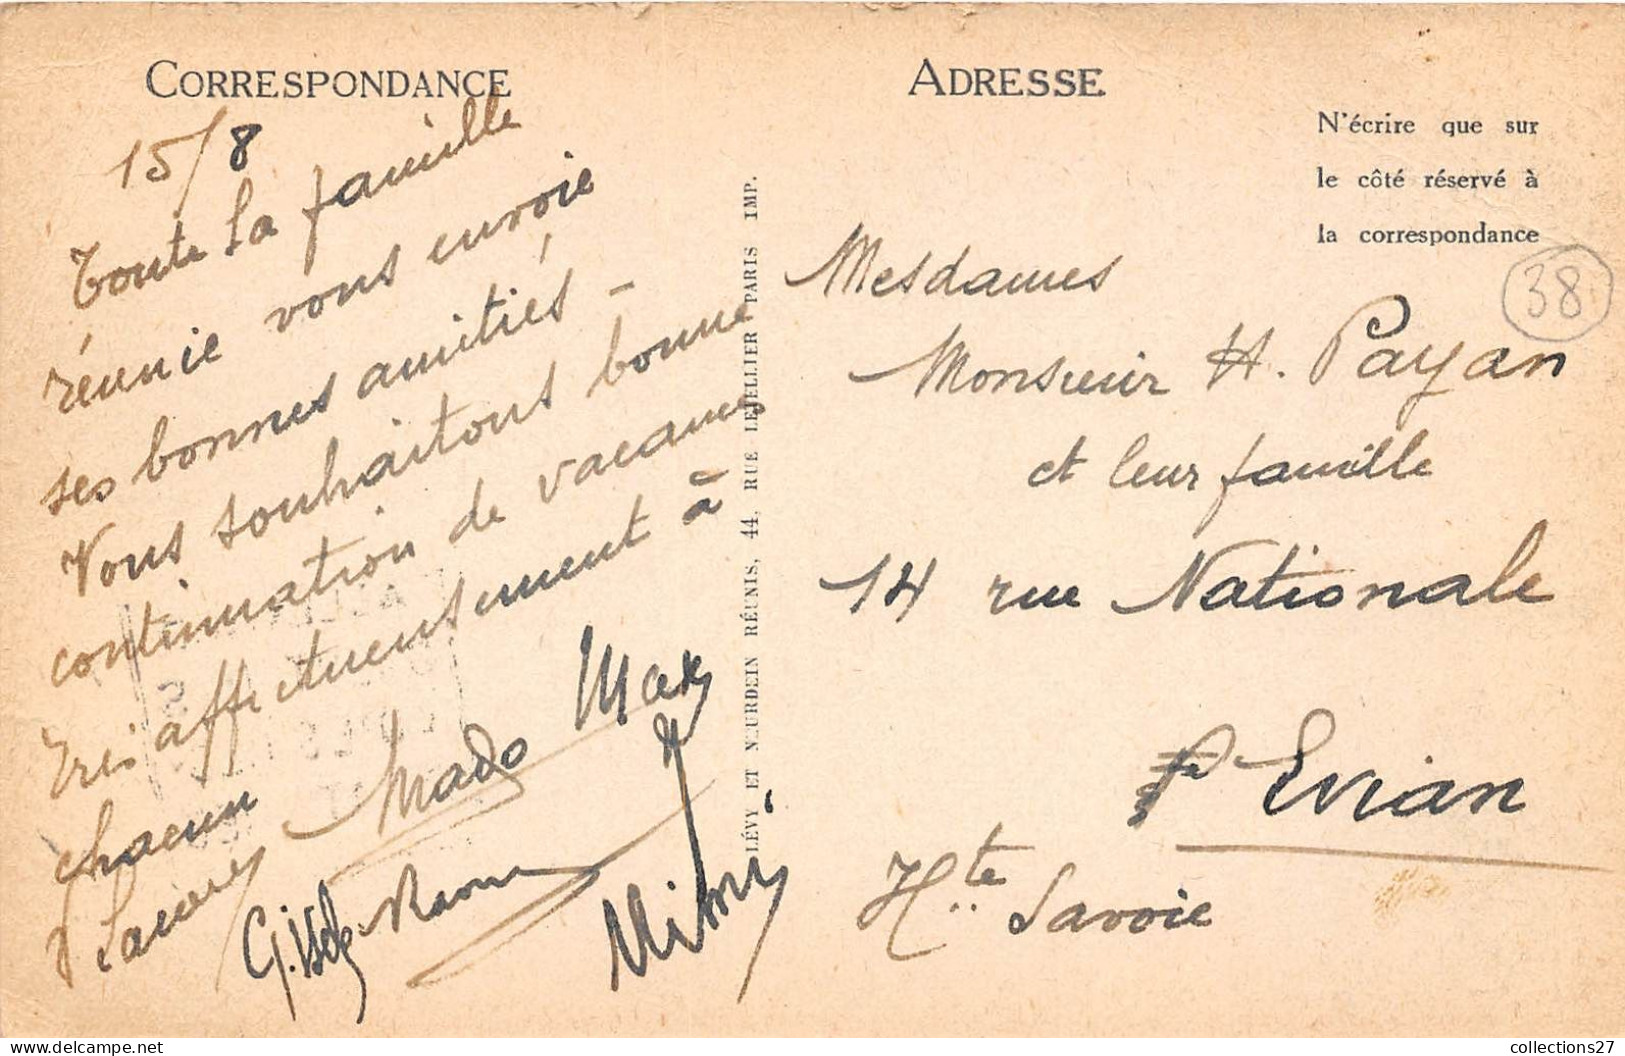 CORRESPONDANCE
15/8
Toute la famille
réunie vous envoie
ses bonnes amitiés -
Vous souhaitons bonne
continuation de vacances
Très affectueusement à
chacun
Mado Max
Gisèle
Mimi
LÉVY ET NEURDEIN RÉUNIS, 44, RUE LETELLIER PARIS IMP.
ADRESSE
N'écrire que sur
le côté réservé à
la correspondance
38
Mesdames
Monsieur H. Payan
et leur famille
14 rue Nationale
Evian
Hte Savoie
collections27